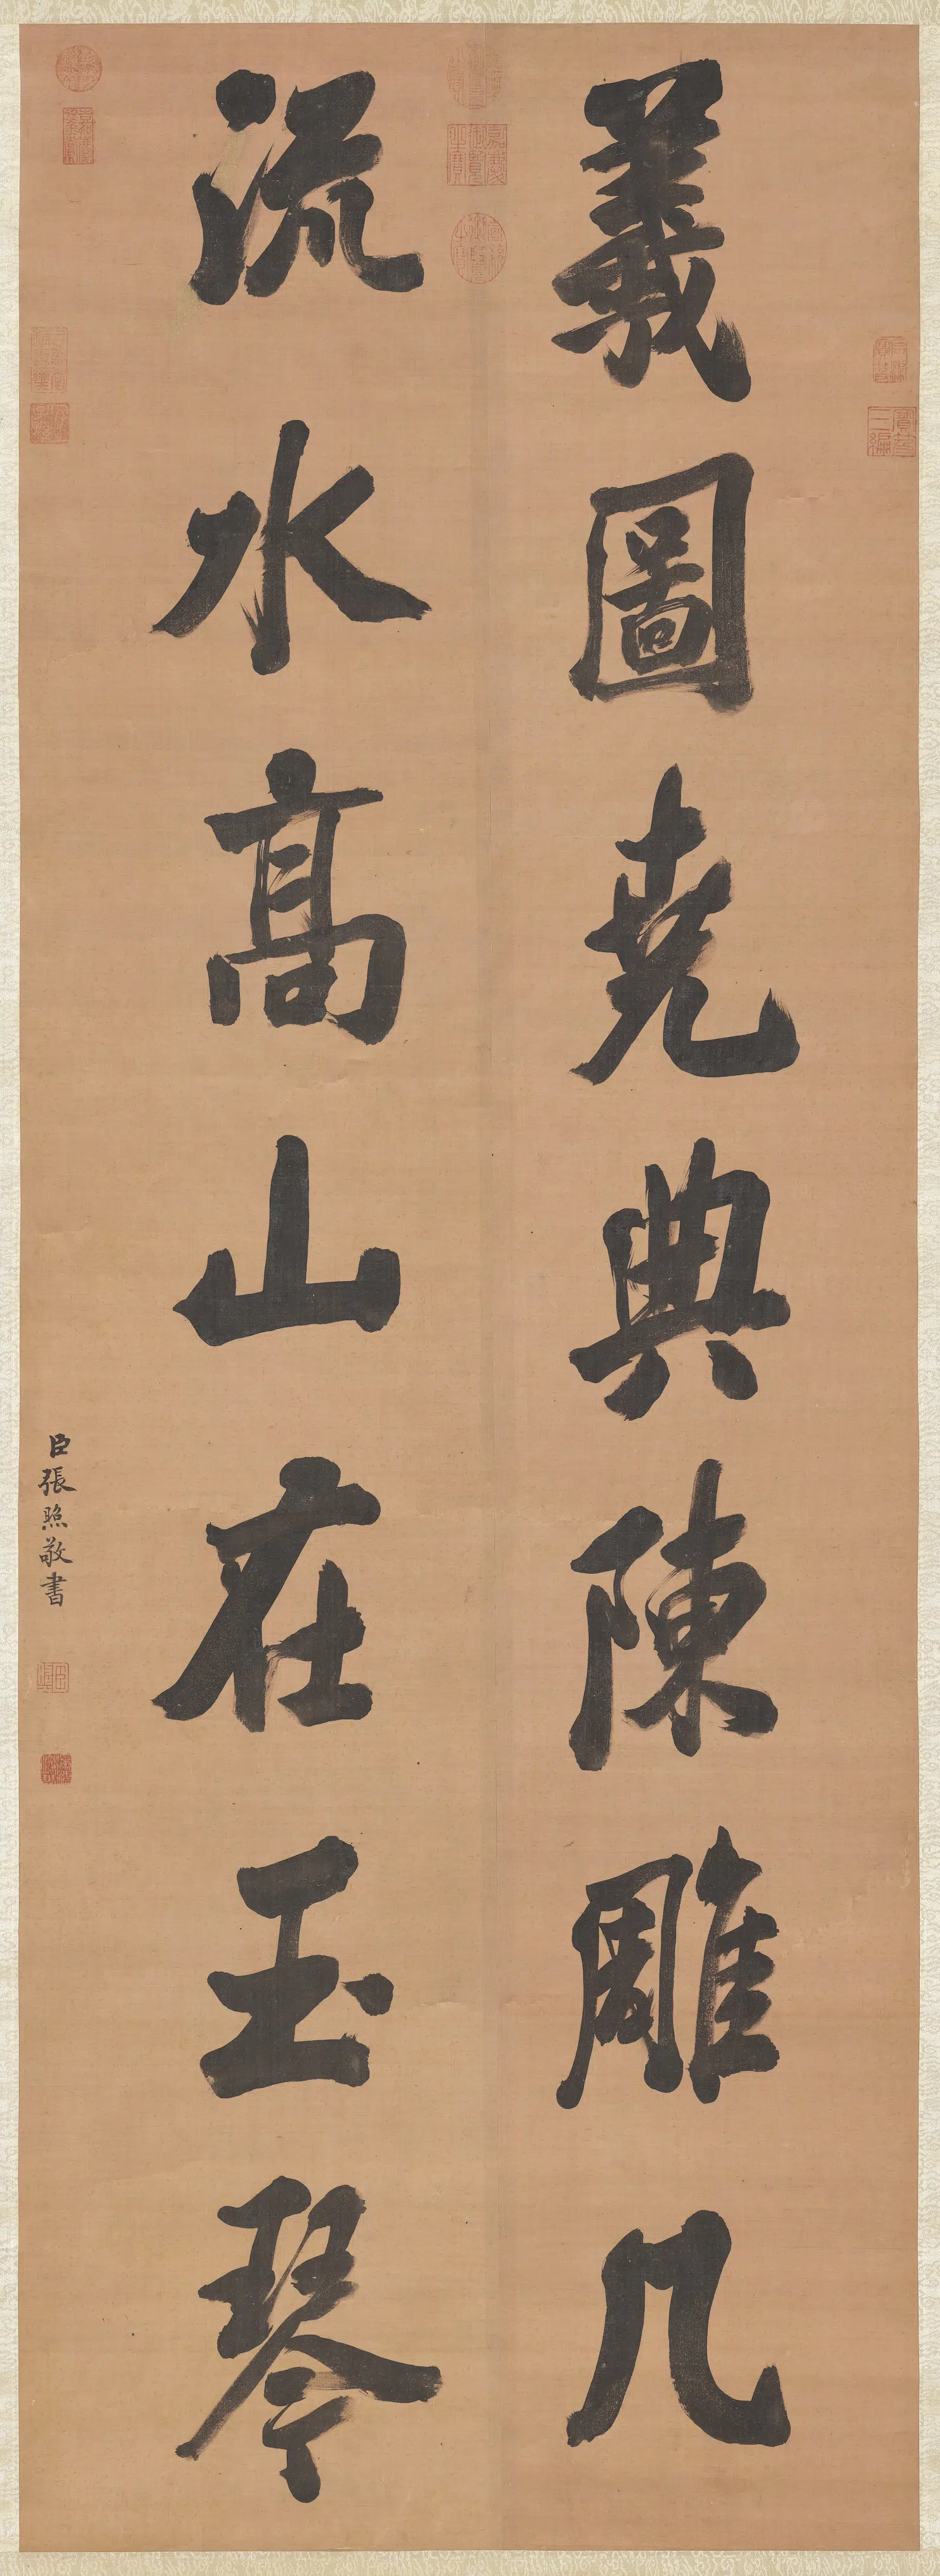 羲圖堯典陳雕几
流水高山在玉琴
臣張照敬書